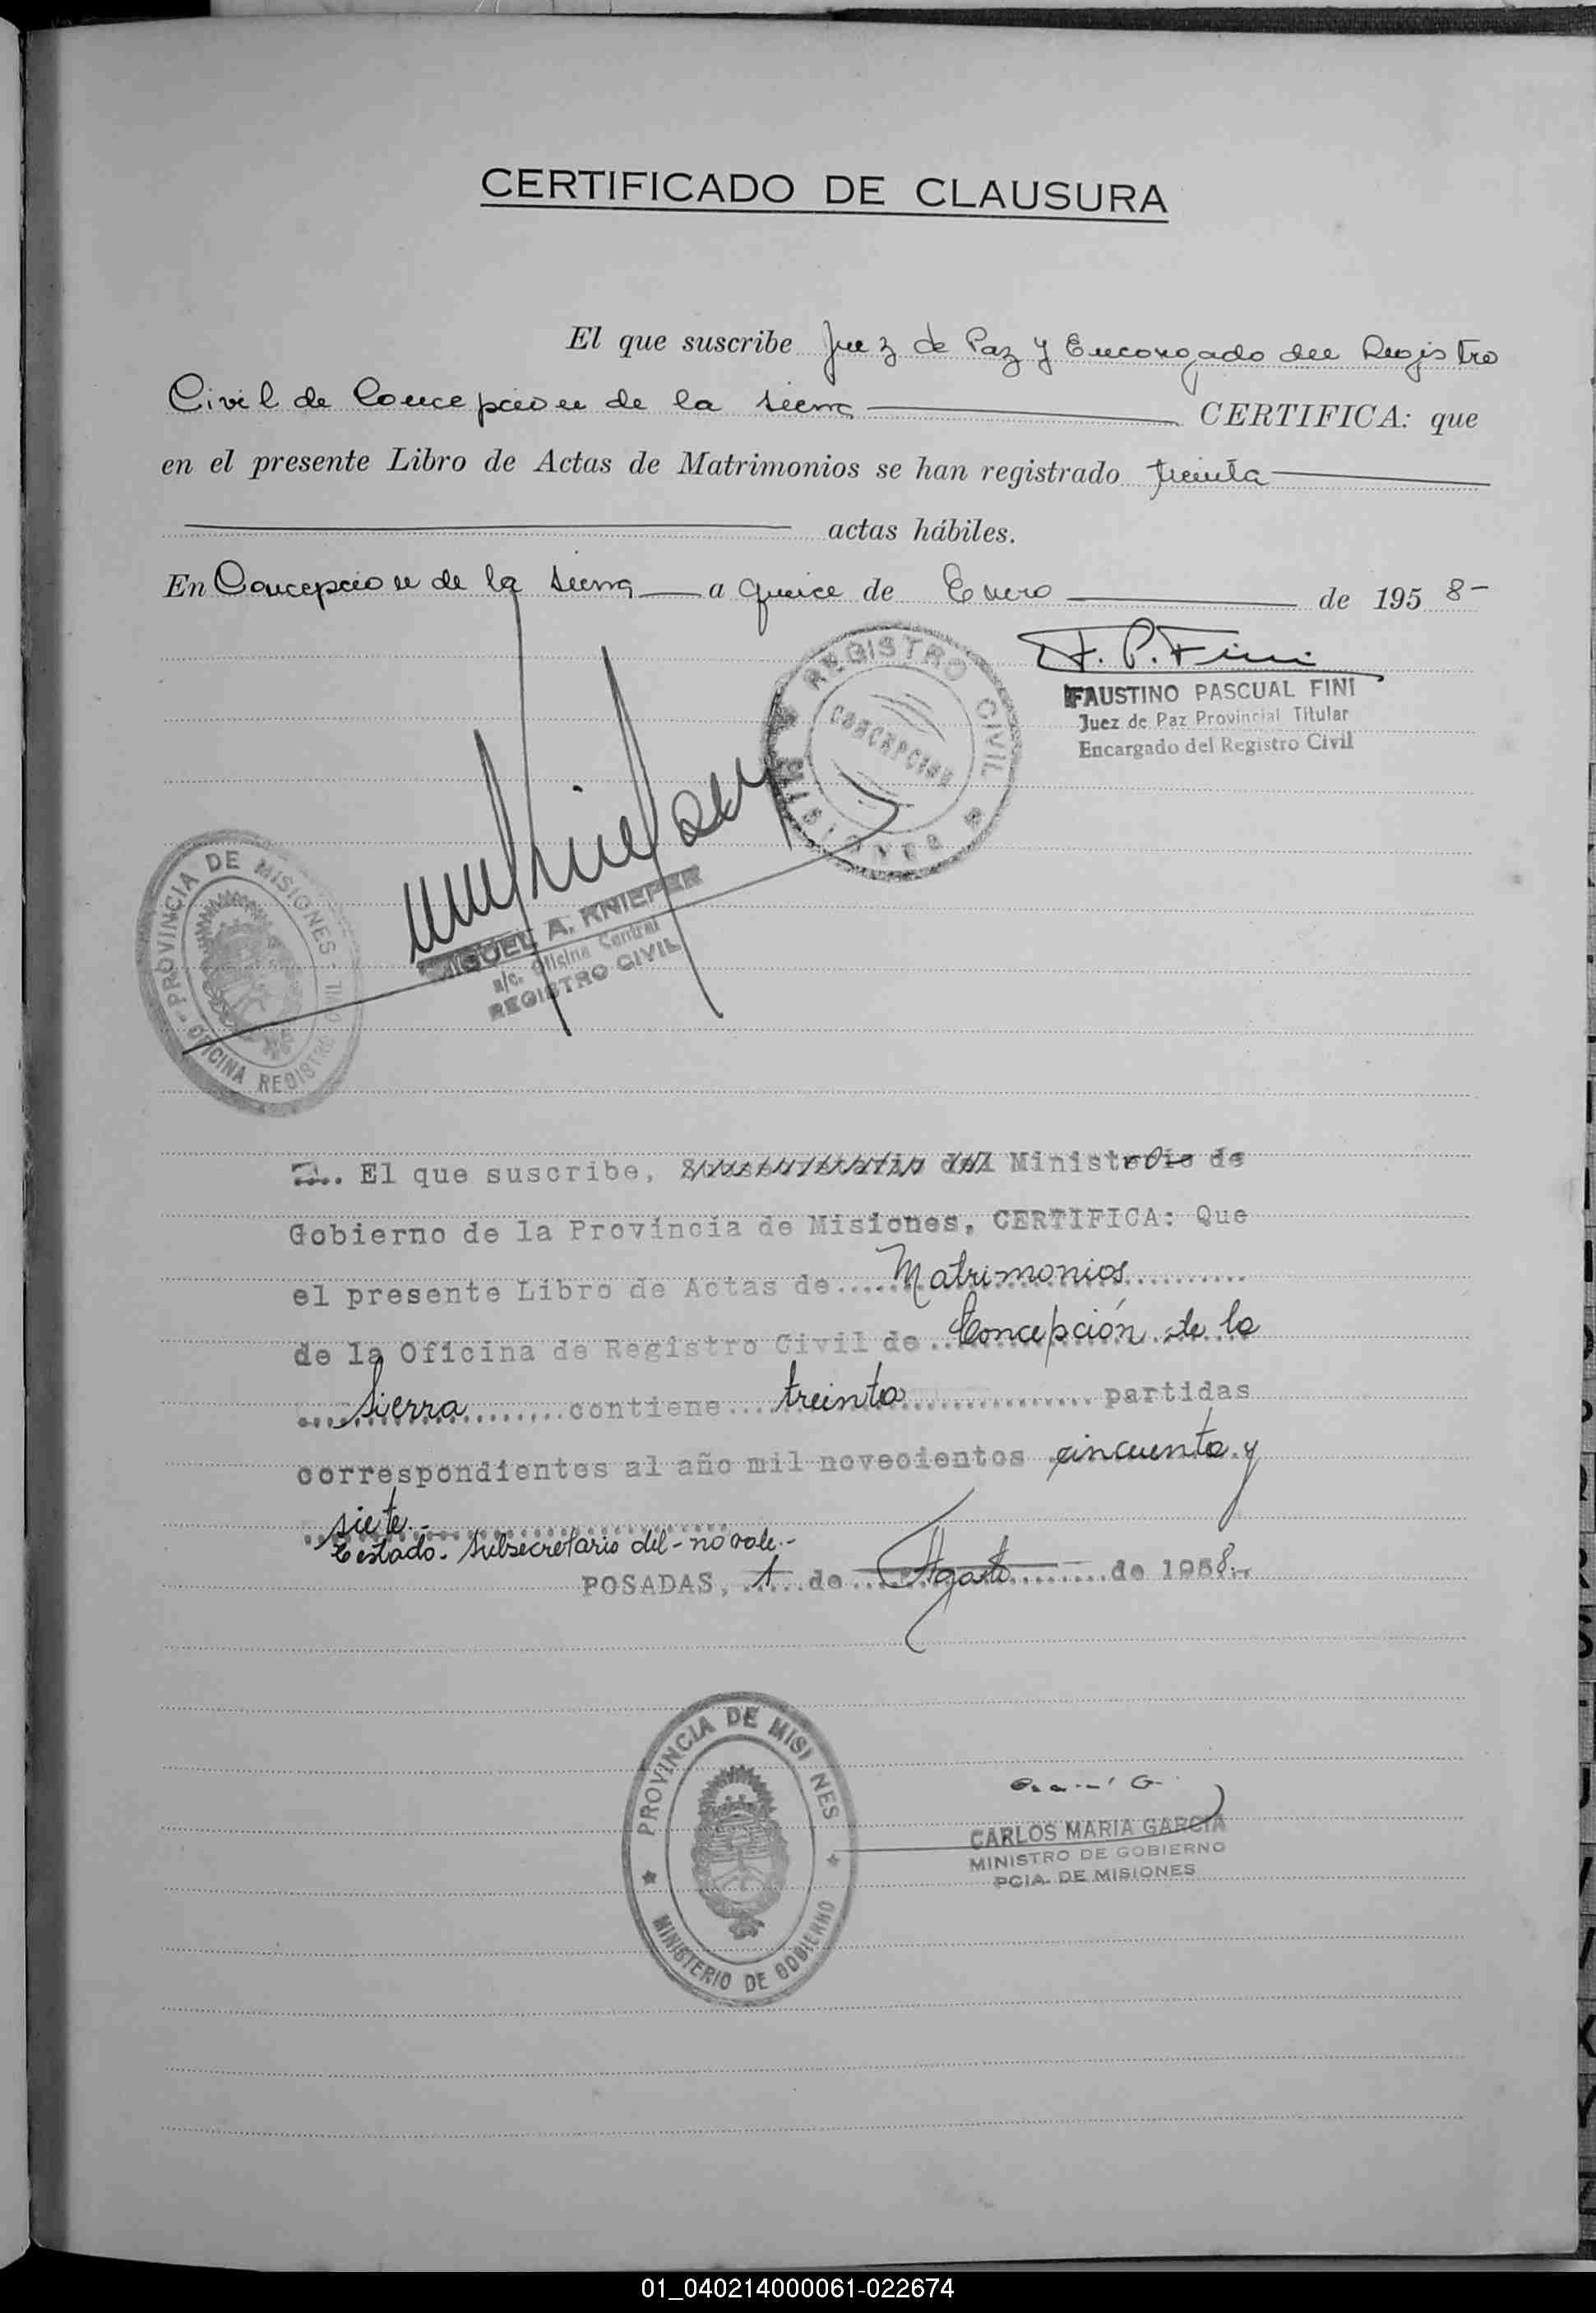 CERTIFICADO DE CLAUSURA
El que suscribe Juez de Paz y Encargado del Registro
Civil de Concepcion de la Sierra CERTIFICA: que
en el presente Libro de Actas de Matrimonios se han registrado treinta
actas hábiles.
En Concepcion de la Sierra a quince de Enero de 1958-
F. P. Fini
FAUSTINO PASCUAL FINI
Juez de Paz Provincial Titular
Encargado del Registro Civil
REGISTRO CIVIL
CONCEPCION
MISIONES
MIGUEL A. KNIEPER
a/c. Oficina Central
REGISTRO CIVIL
PROVINCIA DE MISIONES - OFICINA REGISTRO CIVIL
El que suscribe, Ministro de
Gobierno de la Provincia de Misiones, CERTIFICA: Que
el presente Libro de Actas de Matrimonios
de la Oficina de Registro Civil de Concepción de la
Sierra contiene treinta partidas
correspondientes al año mil novecientos cincuenta y
siete.-
Testado- Subsecretario del - no vale.-
POSADAS, 1 de Agosto de 1958.-
PROVINCIA DE MISI NES
MINISTERIO DE GOBIERNO
CARLOS MARIA GARCIA
MINISTRO DE GOBIERNO
PCIA. DE MISIONES
01_040214000061-022674